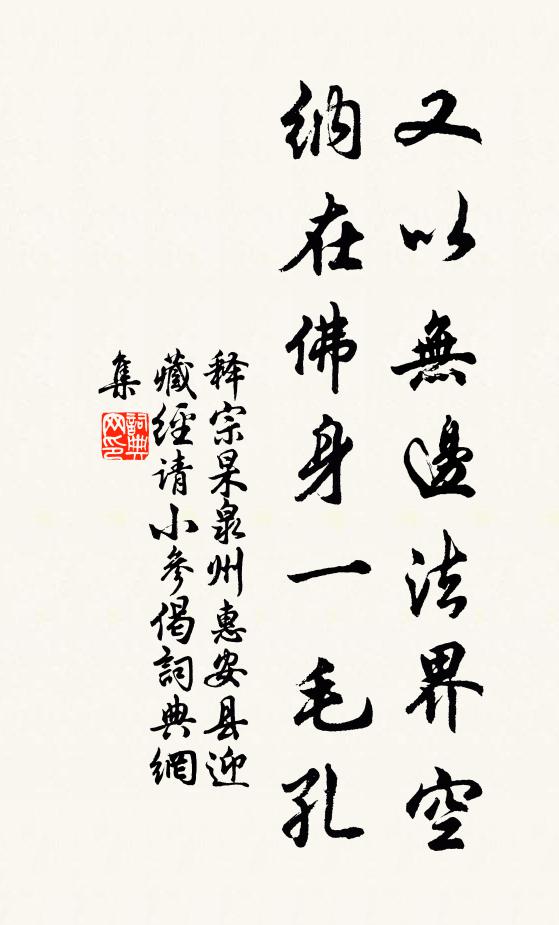 又以無邊法界空
納在佛身一毛孔
释宗杲泉州惠安县迎
藏經请小參偈詞典網
集
詞典
网印